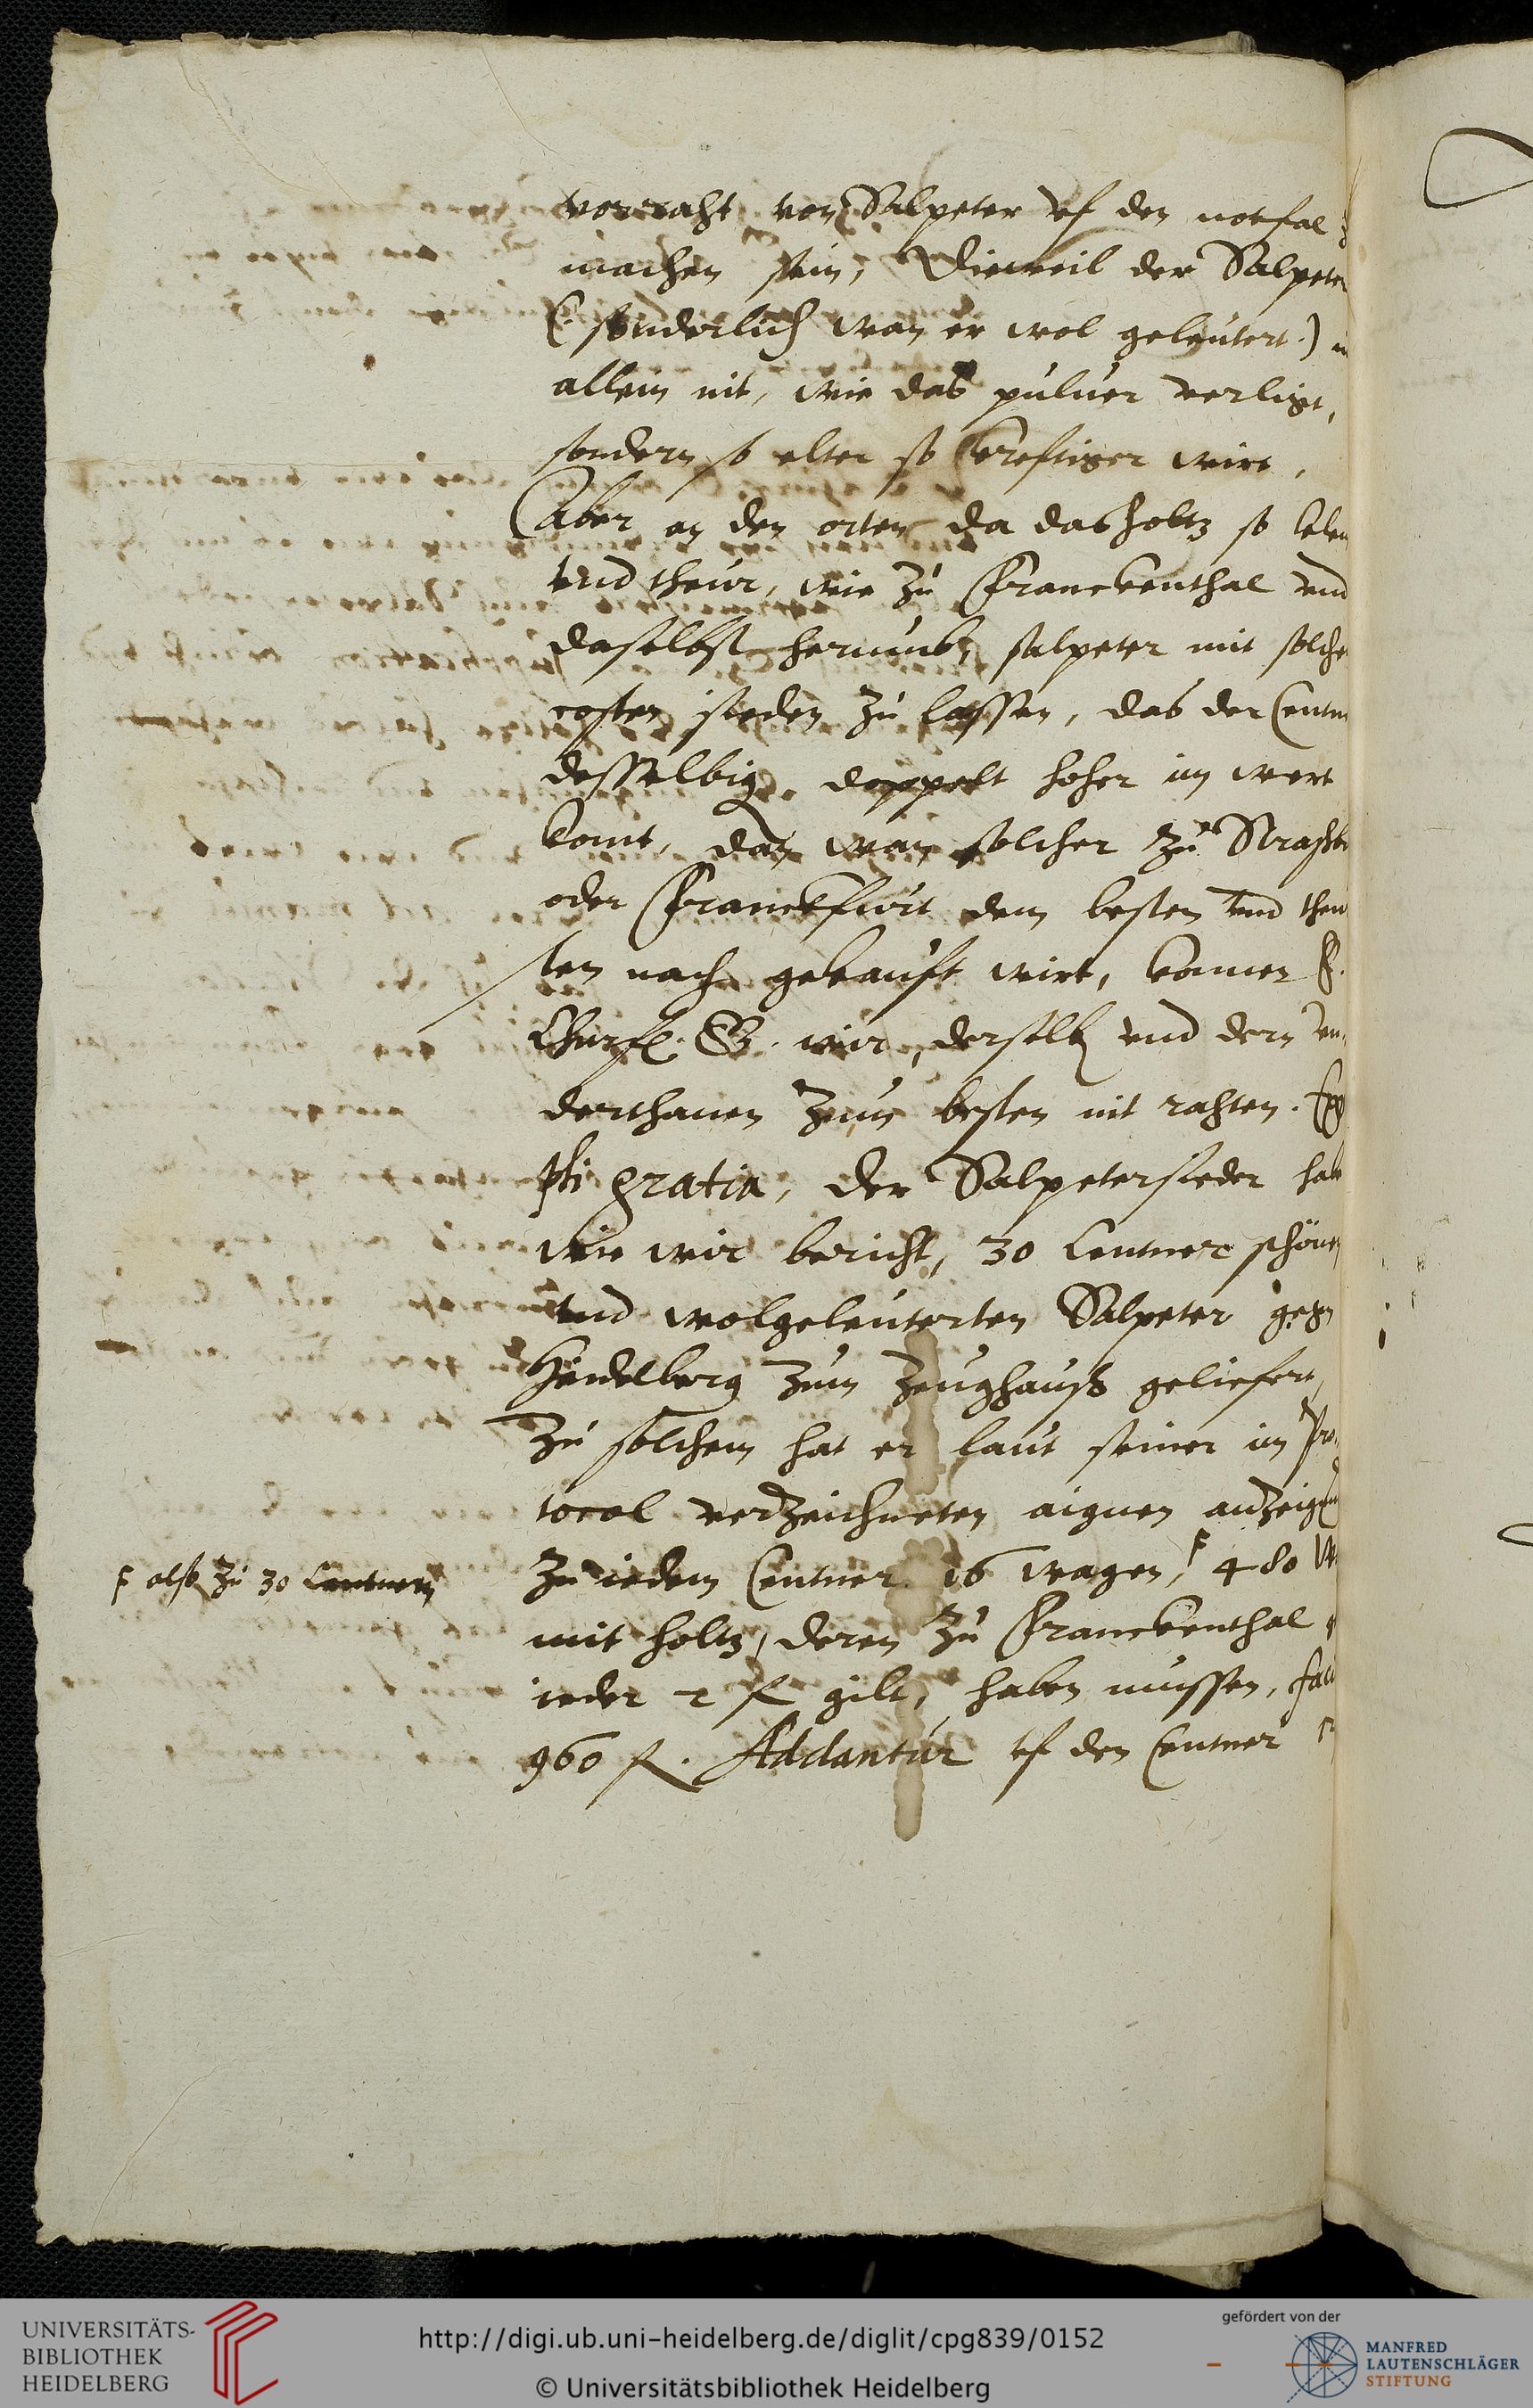 vorraht von Salpeter vf den notfal
machen sein, Dieweil der Salpeter
(: sonderlich wan er wol geleutert :)
allein nit, wie das puluer verligt,
sondern so elter so kreftiger wirt,
Aber an den orten da das holtz so
vnd theur, wie zu Franckenthal vnd
daselbst herumb, salpeter mit solche
costen sieden zu lassen, das der Centn
desselbig doppelt hoher im wert
komt, dan wan solcher zu Straßb
oder Franckfurt dem besten vnd theu
sten nach gekauft wirt, konnen E.
Churfl. G. wir, derselben vnd dern vn,
derthanen zum besten nit rahten. Ex
pli gratia, der Salpetersieder hab
wie wir bericht, 30 Centner schönen
vnd wolgeleuterten Salpeter gegen
Heidelberg zum Zeughauß geliefert,
Zu solchem hat er laut seiner im Pro,
tocol verzeichneten aignen anzeigun
Zu iedem Centner 16 wagen, 480 W
also zu 30 Centnern
mit holtz, deren zu Franckenthal
ieder 2 fl gilt, haben mussen,
960 fl. Addantur vf den Centner
UNIVERSITÄTS-
BIBLIOTHEK
HEIDELBERG
http://digi.ub.uni-heidelberg.de/diglit/cpg839/0152
© Universitätsbibliothek Heidelberg
gefördert von der
MANFRED
LAUTENSCHLÄGER
STIFTUNG